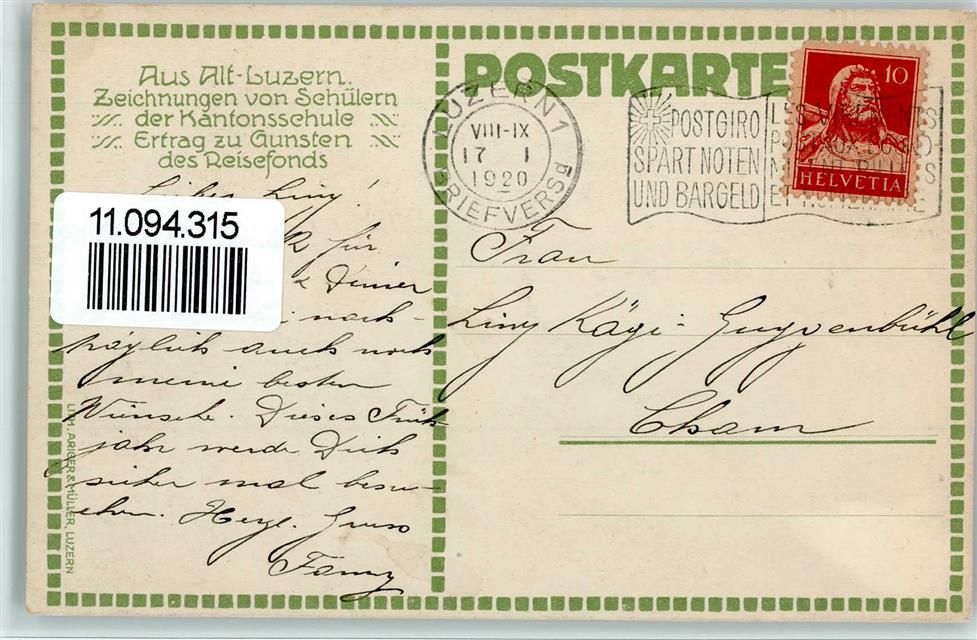 Aus Alt-Luzern.
Zeichnungen von Schülern
der Kantonsschule
Ertrag zu Gunsten
des Reisefonds
POSTKARTE
LUZERN 1
VIII-IX
17 I
1920
BRIEFVERSd
POSTGIRO
SPART NOTEN
UND BARGELD
10
HELVETIA
11.094.315
Liebes Liny!
für
Deiner
nach-
träglich auch noch
meine besten
Wünsche. Dieses Früh-
jahr werde Dich
sicher mal besu-
chen. Herzl. Gruss
Fanny
Frau
Liny Kägi-Guggenbühl
Cham
LITH. ARIGER & MÜLLER, LUZERN